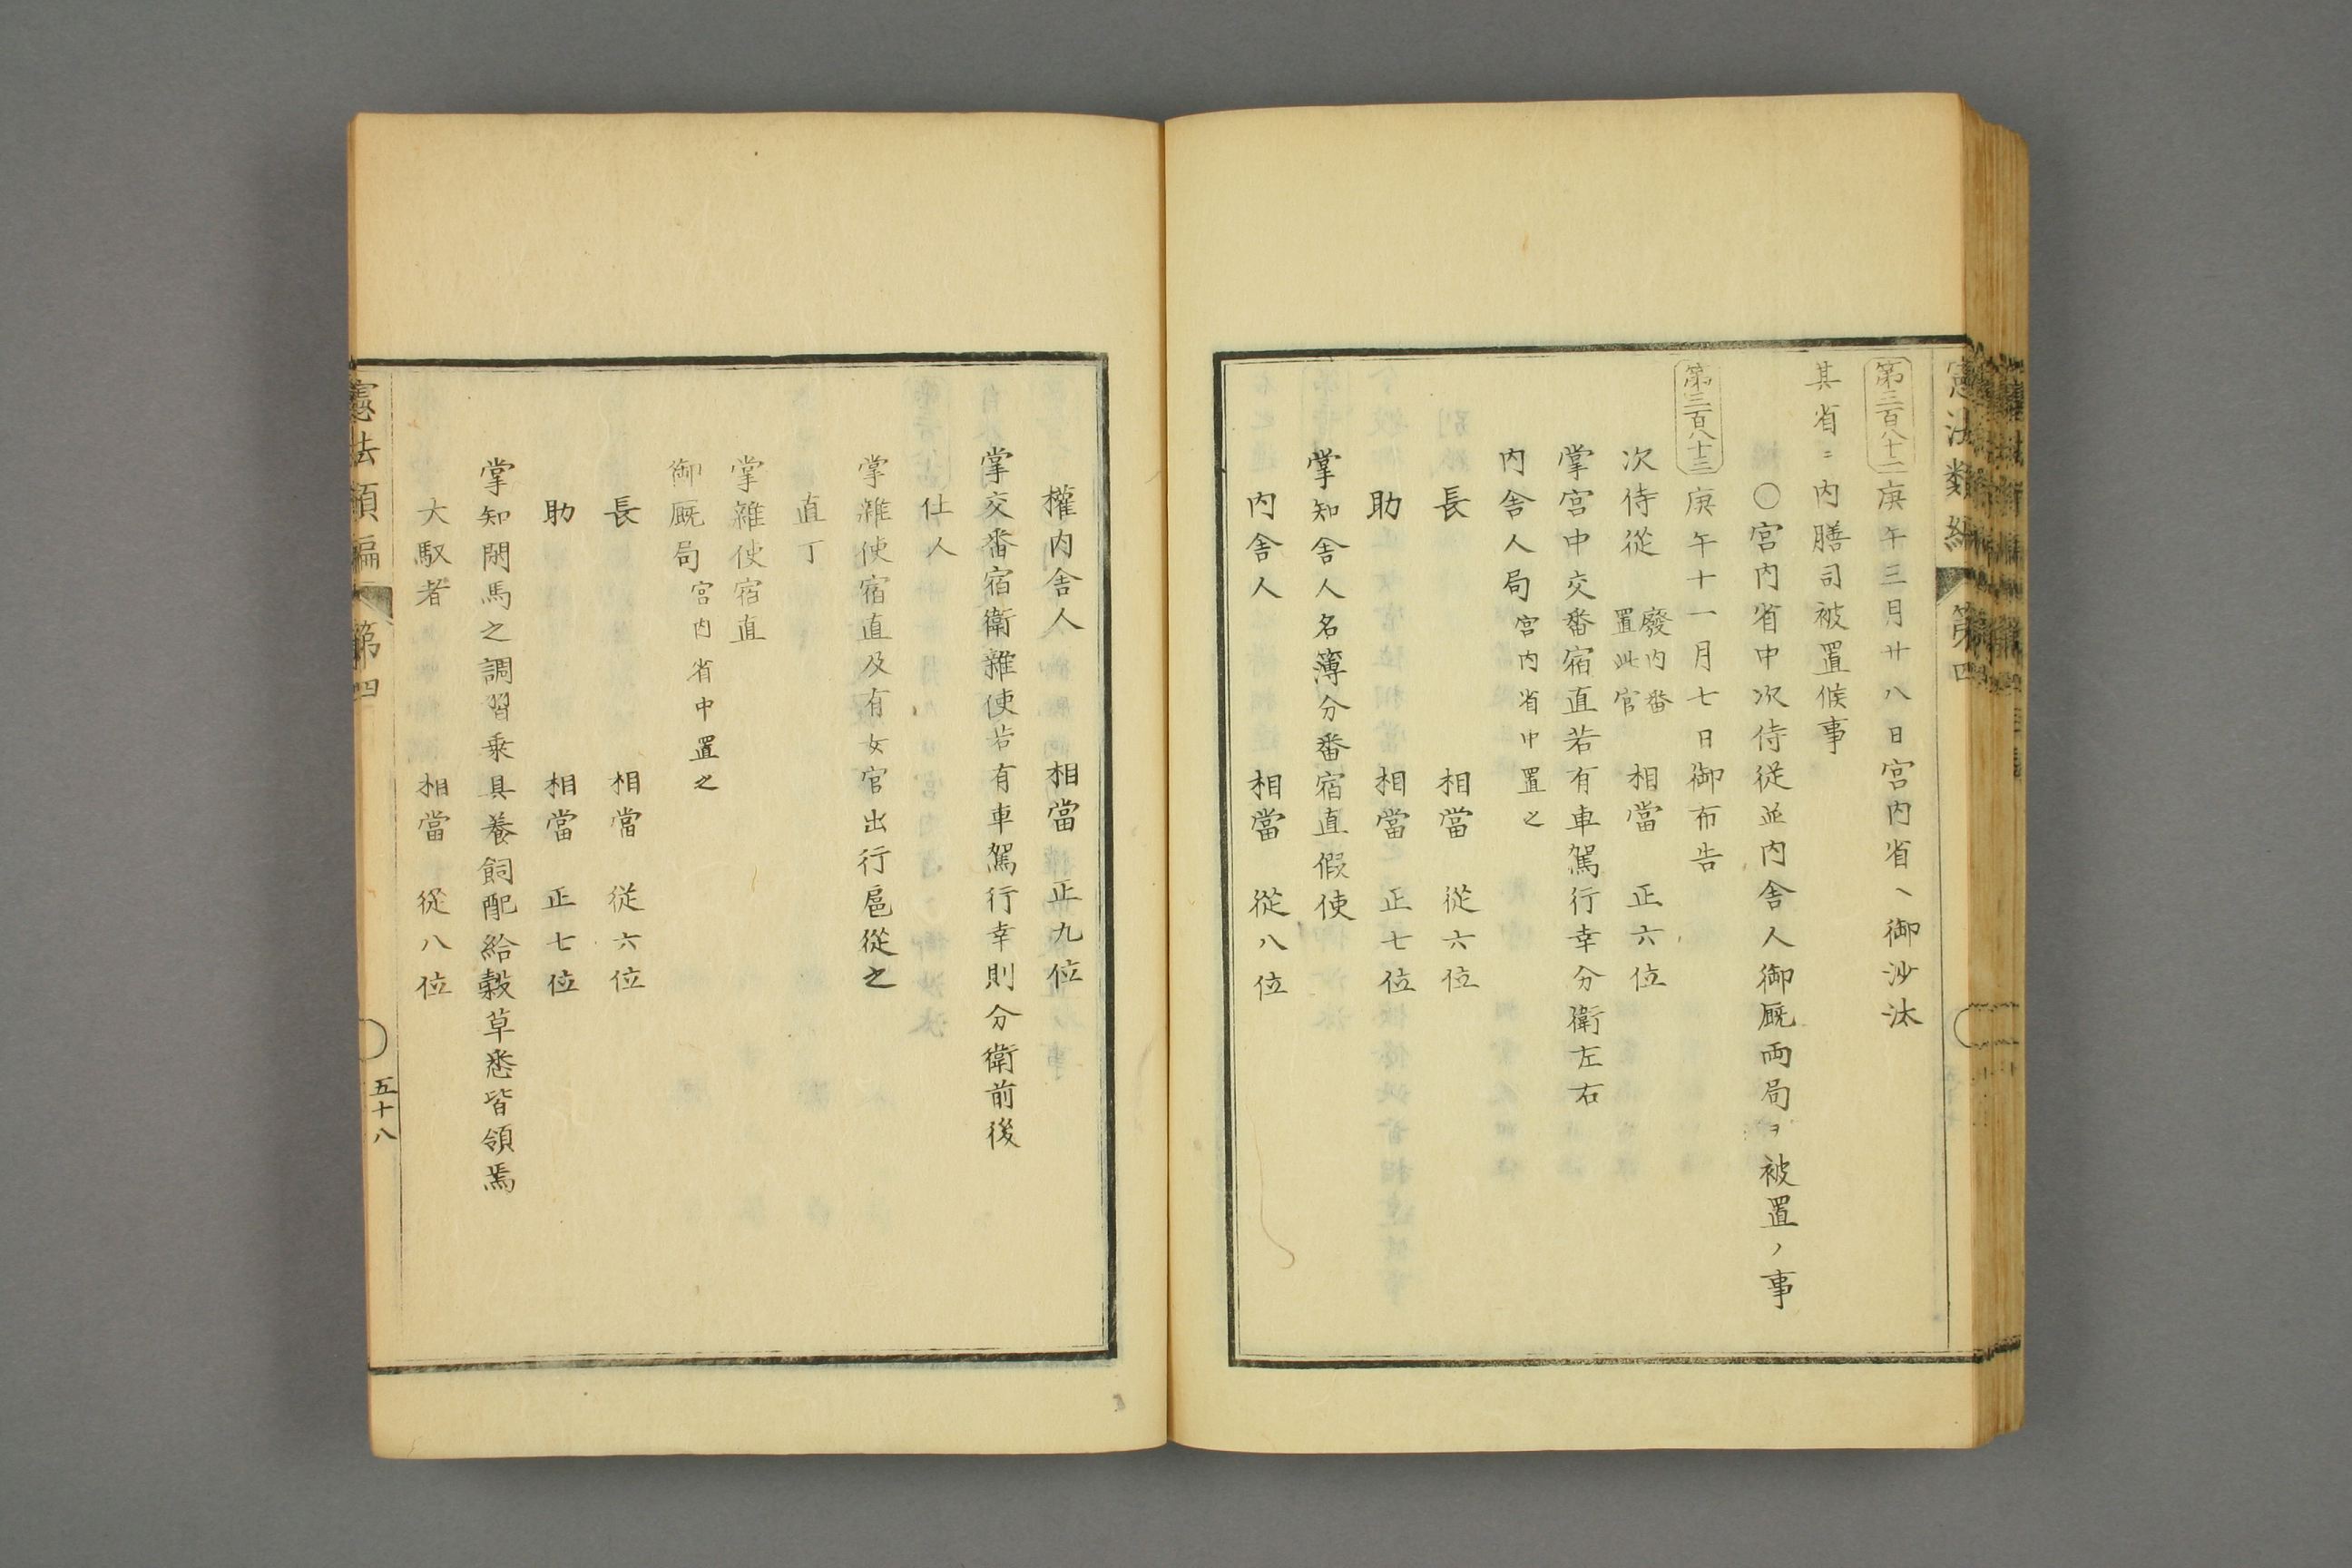 憲法類編 第四
第三百八十二 庚午三月廿八日宮内省ヘ御沙汰
其省ニ内膳司被置候事
〇宮内省中次侍従並内舎人御厩両局ヲ被置ノ事
第三百八十三 庚午十一月七日御布告
次侍從 廢内番置此官 相當 正六位
掌宮中交番宿直若有車駕行幸分衛左右
内舎人局 宮内省中置之
長 相當 從六位
助 相當 正七位
掌知舎人名簿分番宿直假使
内舎人 相當 從八位
權内舎人 相當 正九位
掌交番宿衛雜使若有車駕行幸則分衛前後
仕人
掌雜使宿直及有女官出行扈從之
直丁
掌雜使宿直
御厩局 宮内省中置之
長 相當 從六位
助 相當 正七位
掌知閑馬之調習乗具養飼配給穀草悉皆領焉
大馭者 相當 從八位
憲法類編 第四 五十八